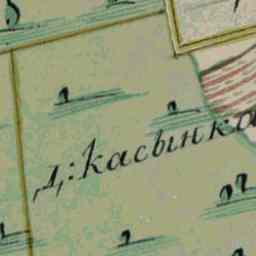 Д: Касынка